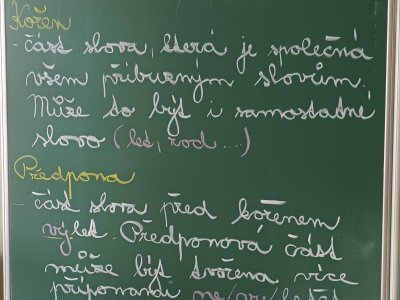 Kořen
- část slova, která je společná
všem příbuzným slovům.
Může to být i samostatné
slovo (let, rod ...)
Předpona
- část slova před kořenem
výlet. Předponová část
může být tvořena více
příponami ne/vy/letět